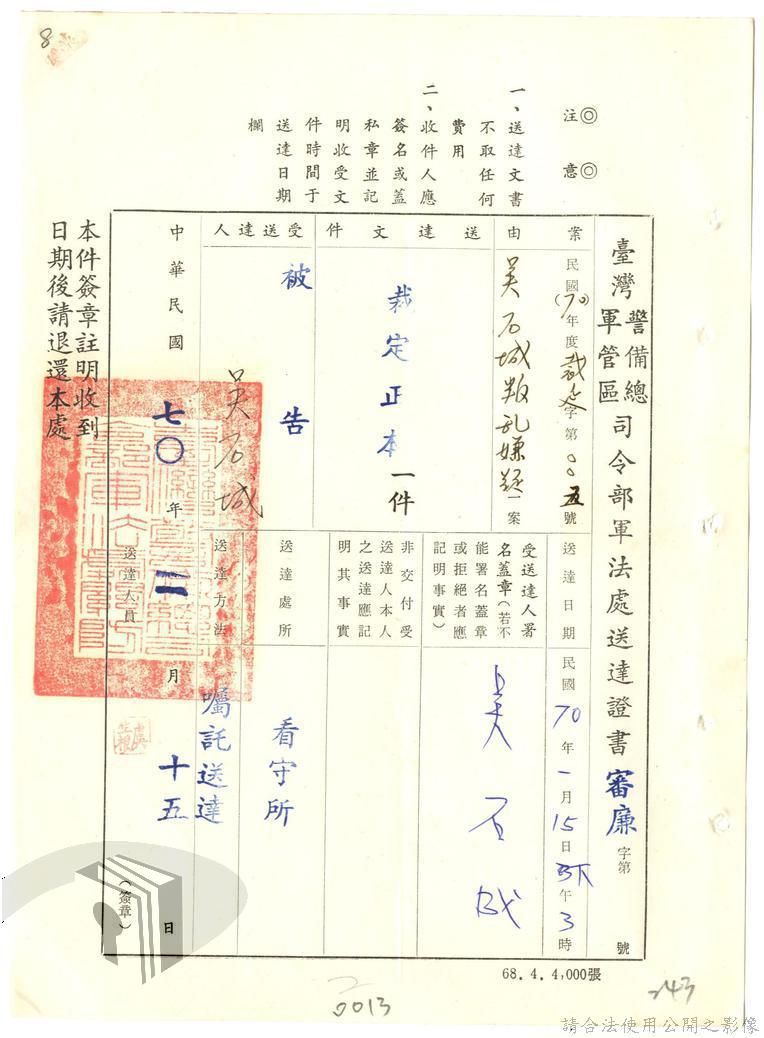 8
◎注意◎
一、送達文書
不取任何
費用
二、收件人應
簽名或蓋
私章並記
明收受文
件時間于
送達日期
欄
臺灣警備總軍管區司令部軍法處送達證書審廉字第 號
案由
民國(70)年度裁 字第005號
吳石城叛乱嫌疑一案
送達文件
裁定正本一件
受送達人
被告
吳石城
送達日期
民國70年一月15日下午3時
受送達人署
名蓋章(若不
能署名蓋章
或拒絕者應
記明事實)
吳石城
非交付受
送達人本人
之送達應記
明其事實
送達處所
看守所
送達方法
囑託送達
中華民國七〇年一月十五日
送達人員
(簽章)
本件簽章註明收到
日期後請退還本處
68.4.4,000張
0013
243
請合法使用公開之影像